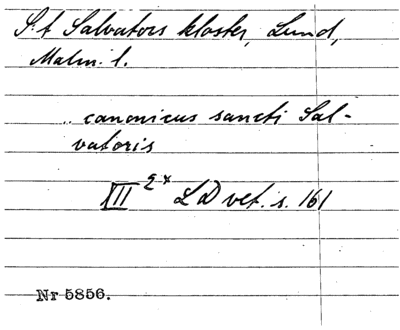 S:t Salvators kloster, Lund,
Malm. l.
.. canonicus sancti Sal-
vatoris
XII 2x LD vet. s. 161
Nr 5856.